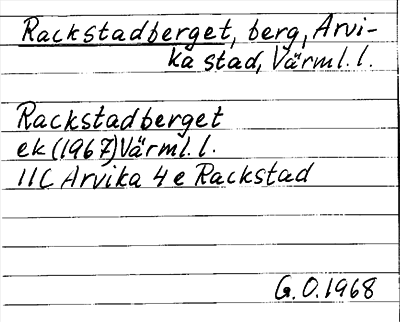 Rackstadberget, berg, Arvi-
ka stad, Värml. l.
Rackstadberget
ek (1967) Värml. l.
11C Arvika 4 e Rackstad
G.O. 1968